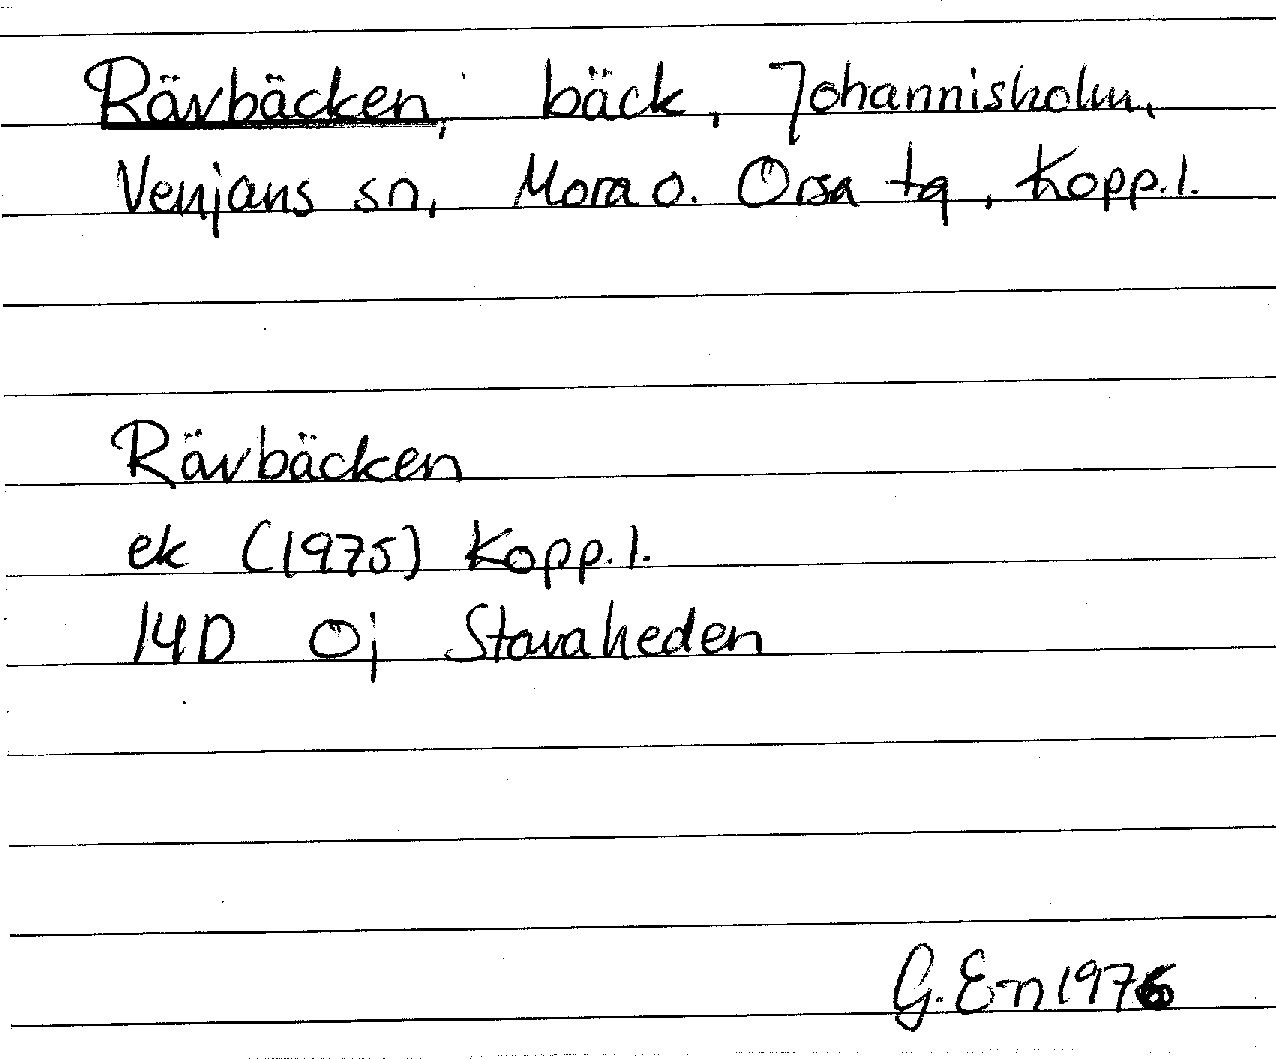 Rävbäcken, bäck, Johannisholm,
Venjans sn, Mora o. Orsa tg, Kopp.l.
Rävbäcken
ek (1975) Kopp.l.
14D 0j Stavaheden
G. E-n 1976